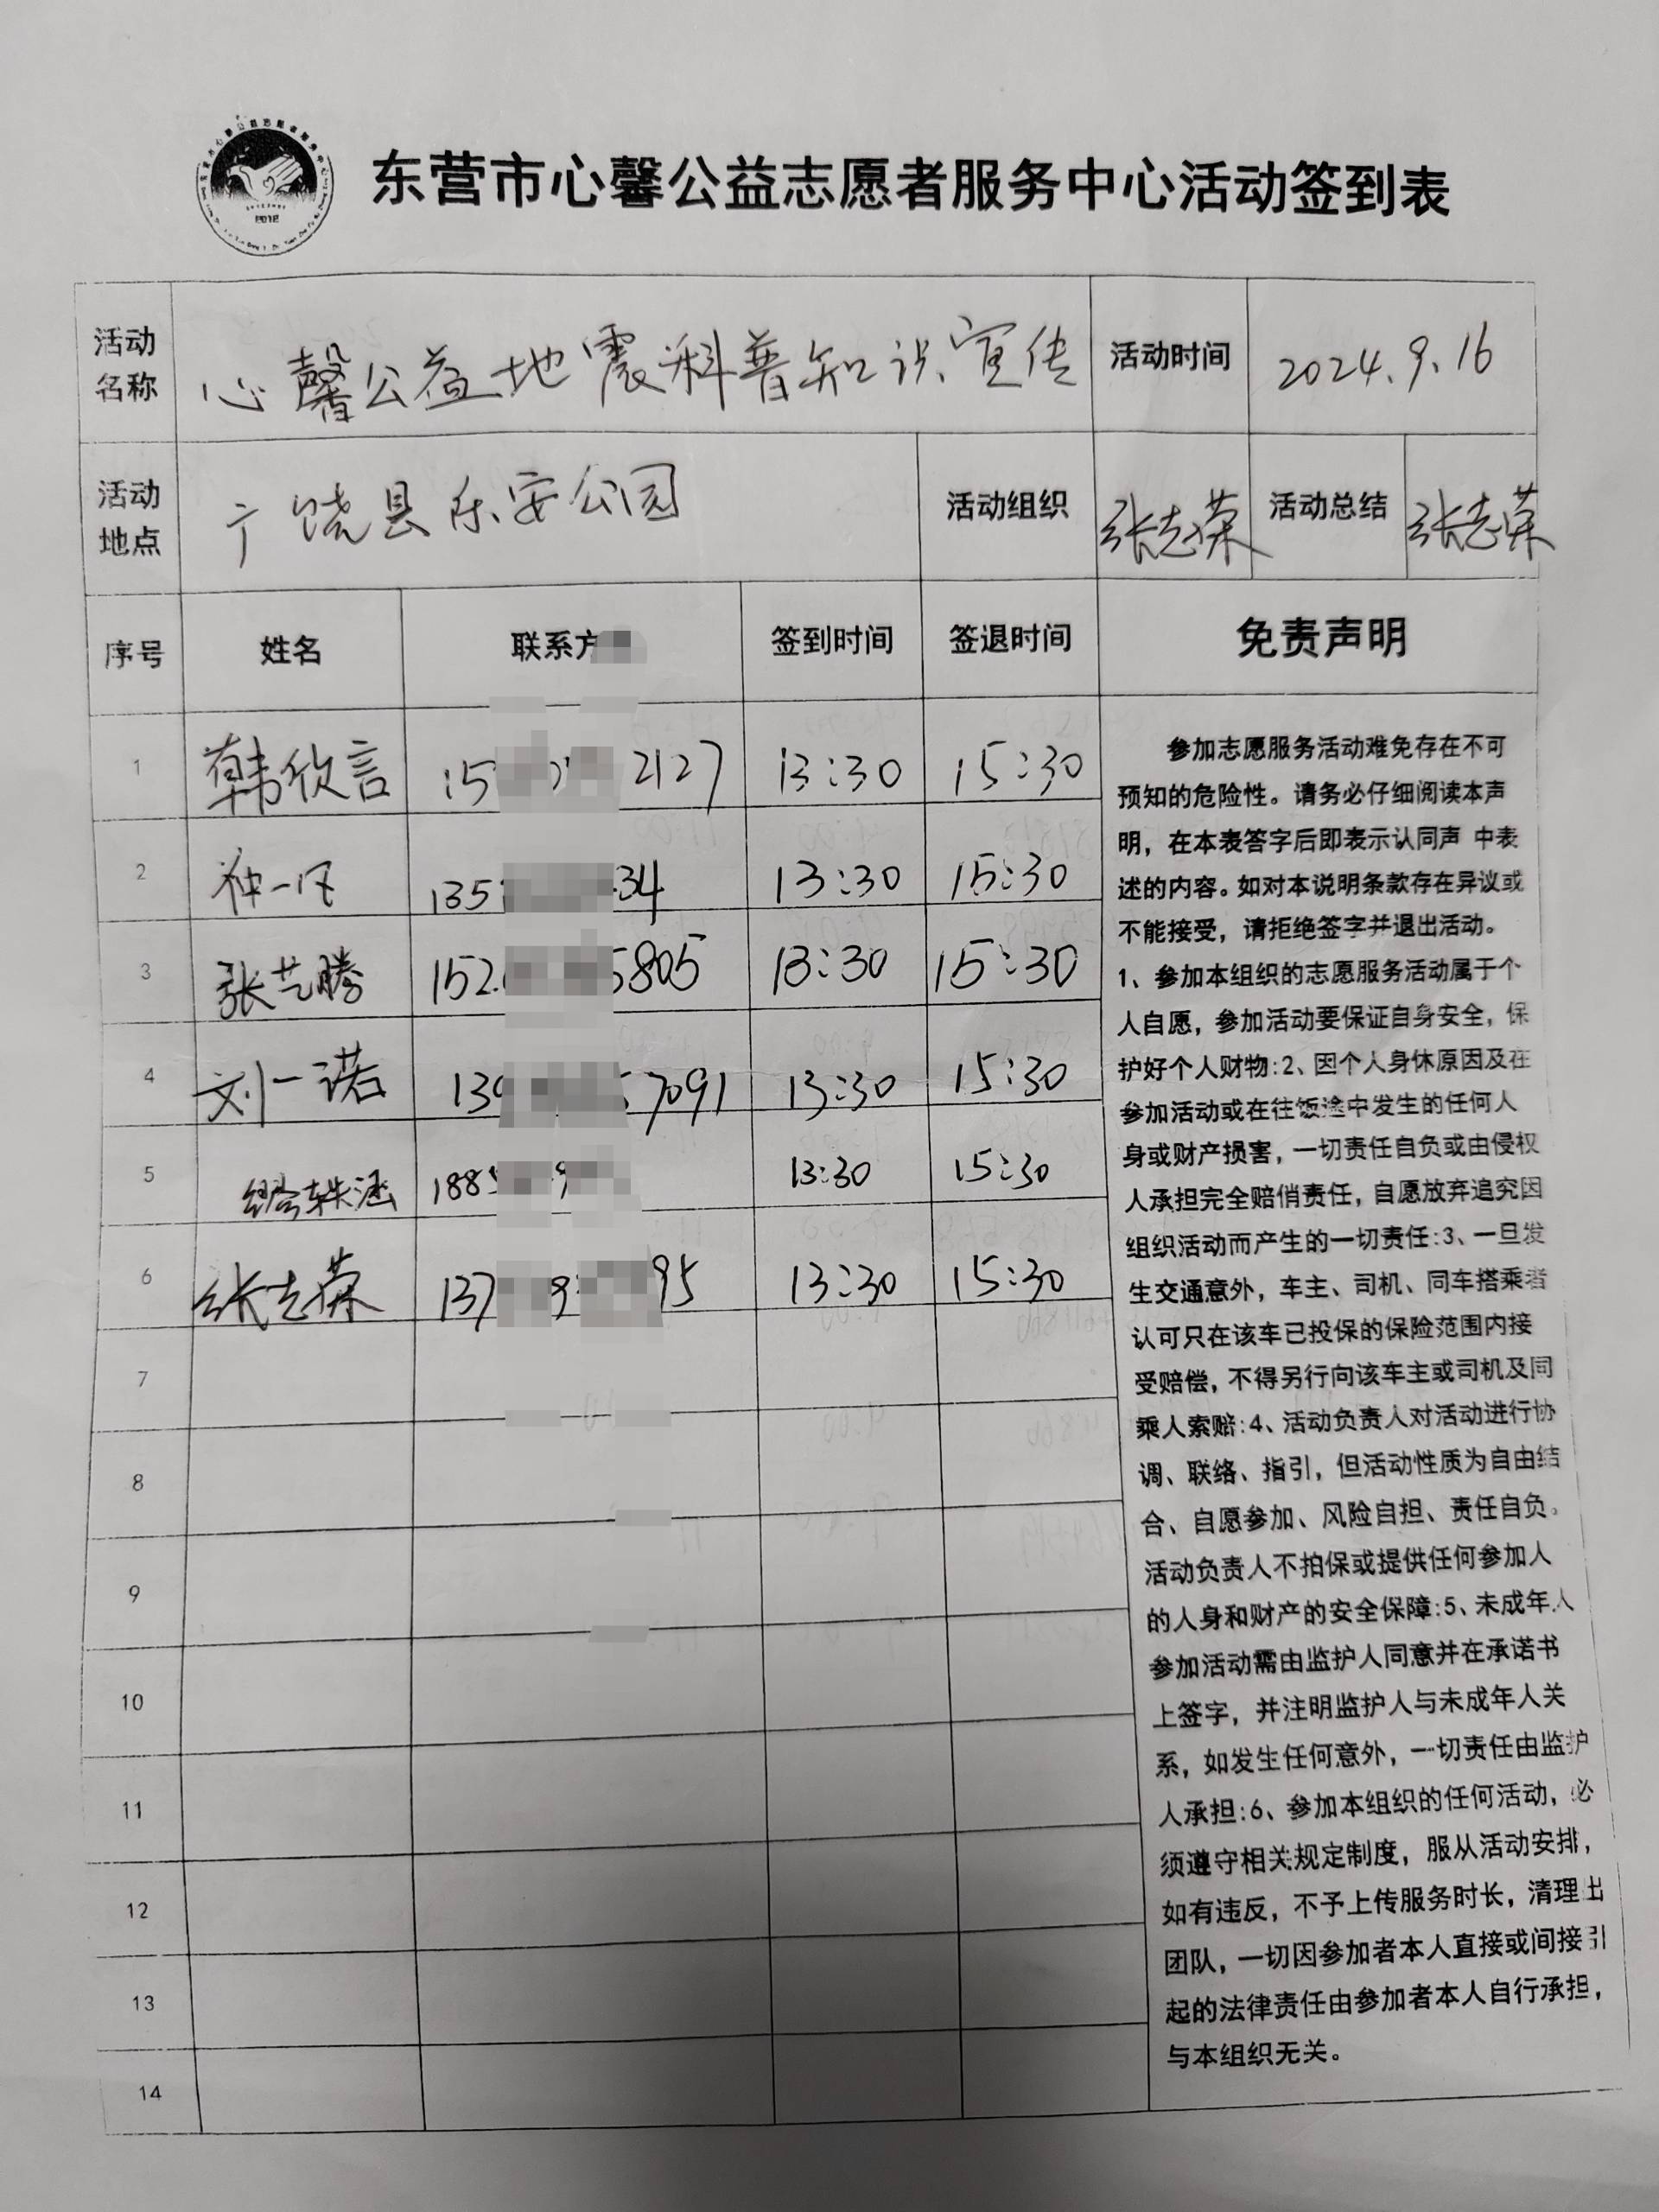 2012
东营市心馨公益志愿者服务中心活动签到表
活动名称 心馨公益地震科普知识宣传 活动时间 2024.9.16
活动地点 广饶县乐安公园 活动组织 张志荣 活动总结 张志荣
序号 姓名 联系方 签到时间 签退时间 免责声明
1 韩欣言 15 2127 13:30 15:30
2 一 135 34 13:30 15:30
3 张艺腾 152 5805 13:30 15:30
4 刘一诺 139 7091 13:30 15:30
5 缪轶涵 188 13:30 15:30
6 张志荣 137 9 95 13:30 15:30
7
8
9
10
11
12
13
14
参加志愿服务活动难免存在不可
预知的危险性。请务必仔细阅读本声
明，在本表答字后即表示认同声 中表
述的内容。如对本说明条款存在异议或
不能接受，请拒绝签字并退出活动。
1、参加本组织的志愿服务活动属于个
人自愿，参加活动要保证自身安全，保
护好个人财物:2、因个人身休原因及在
参加活动或在往饭途中发生的任何人
身或财产损害，一切责任自负或由侵权
人承担完全赔俏责任，自愿放弃追究因
组织活动而产生的一切责任:3、一旦发
生交通意外，车主、司机、同车搭乘者
认可只在该车已投保的保险范围内接
受赔偿，不得另行向该车主或司机及同
乘人索赔:4、活动负责人对活动进行协
调、联络、指引，但活动性质为自由结
合、自愿参加、风险自担、责任自负。
活动负责人不拍保或提供任何参加人
的人身和财产的安全保障:5、未成年人
参加活动需由监护人同意并在承诺书
上签字，并注明监护人与未成年人关
系，如发生任何意外，一切责任由监护
人承担:6、参加本组织的任何活动，必
须遵守相关规定制度，服从活动安排，
如有违反，不予上传服务时长，清理出
团队，一切因参加者本人直接或间接引
起的法律责任由参加者本人自行承担，
与本组织无关。